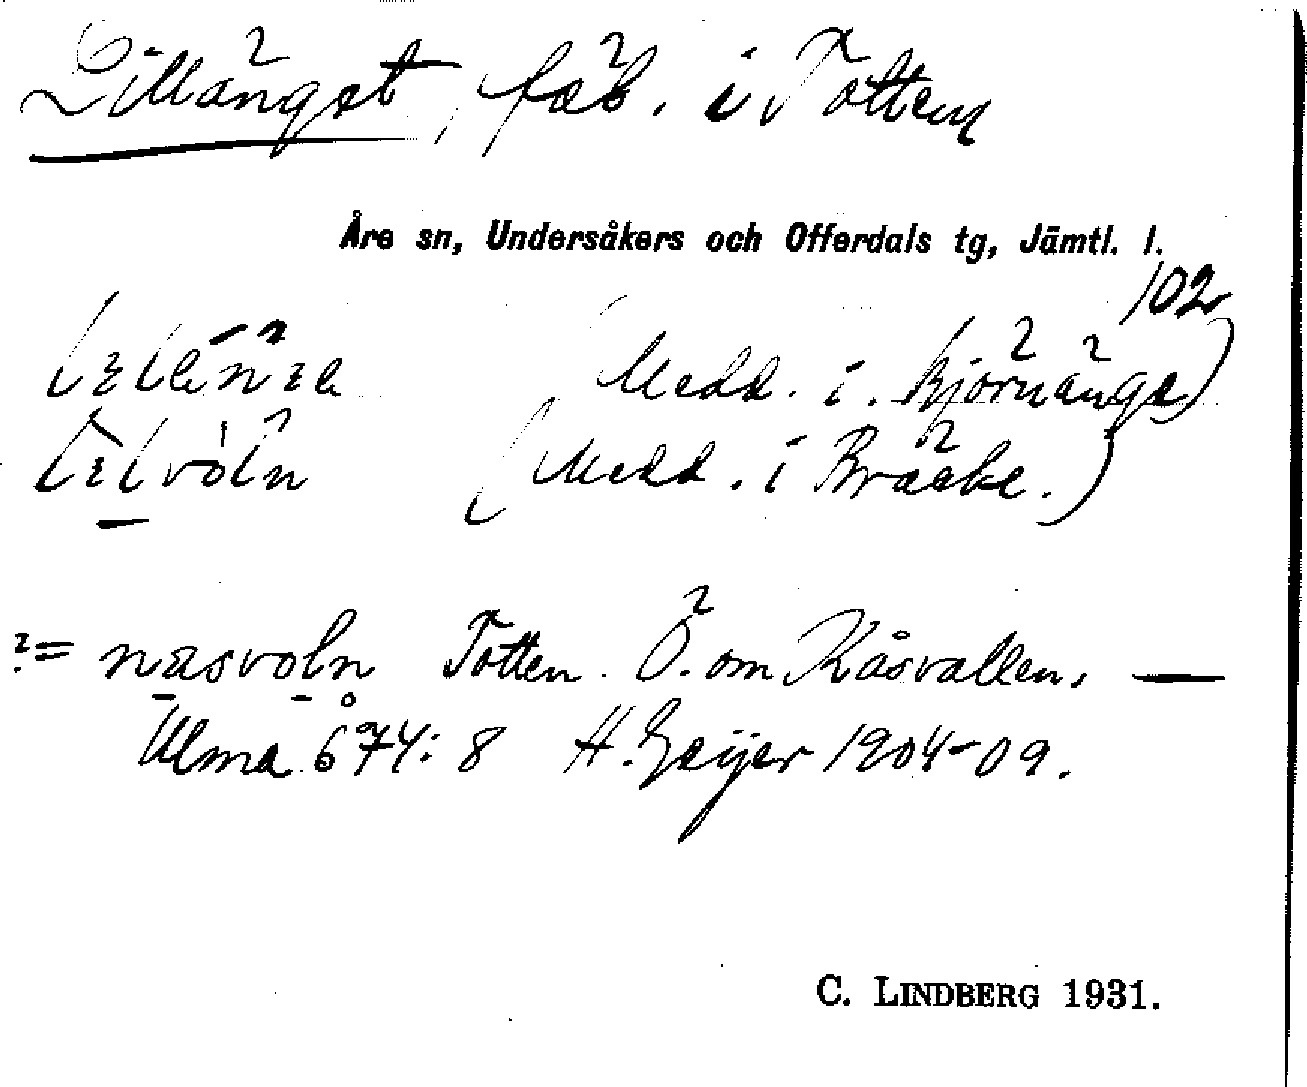 Lillänget, fäb. i Totten
Åre sn, Undersåkers och Offerdals tg, Jämtl. l.
102
(Medd. i Björnänge)
(Medd. i Bräcke.)
?= näsvoln Totten. Ö. om Kåsvallen, —
Ulma 674: 8 H. Geijer 1904-09.
C. LINDBERG 1931.